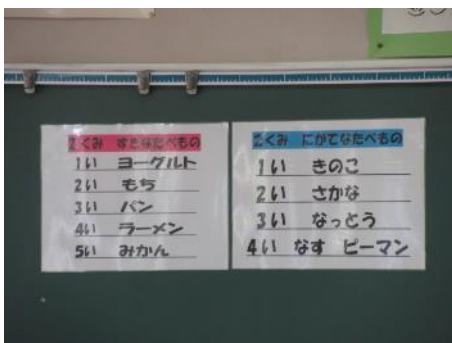 2くみ すきなたべもの
1い ヨーグルト
2い もち
3い パン
4い ラーメン
5い みかん
2くみ にがてなたべもの
1い きのこ
2い さかな
3い なっとう
4い なす ピーマン